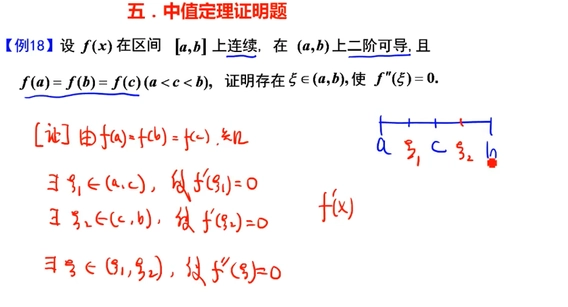 五．中值定理证明题
【例18】设 f(x) 在区间 [a,b] 上连续, 在 (a,b) 上二阶可导, 且
f(a) = f(b) = f(c) (a < c < b), 证明存在 ξ ∈ (a,b), 使 f''(ξ) = 0.
[证] 由 f(a) = f(b) = f(c) 知
∃ ξ₁ ∈ (a,c), 使 f'(ξ₁) = 0
∃ ξ₂ ∈ (c,b), 使 f'(ξ₂) = 0
∃ ξ ∈ (ξ₁,ξ₂), 使 f''(ξ) = 0
a ξ₁ c ξ₂ b
f'(x)